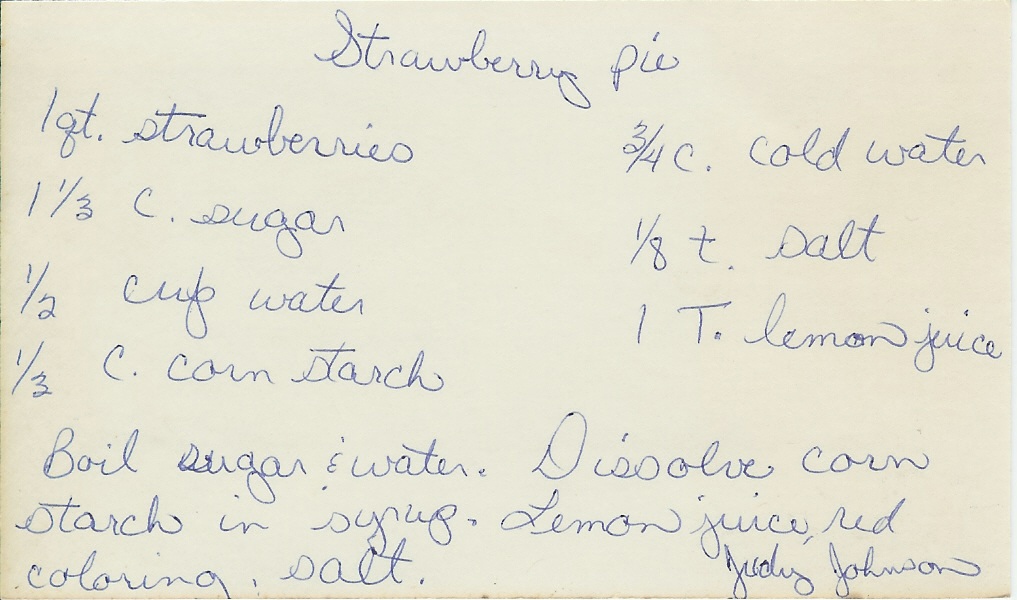 Strawberry pie
1 qt. strawberries
1 1/3 C. sugar
1/2 cup water
1/3 C. corn starch
3/4 c. cold water
1/8 t. salt
1 T. lemon juice
Boil sugar & water. Dissolve corn
starch in syrup. Lemon juice, red
coloring, salt.
Judy Johnson